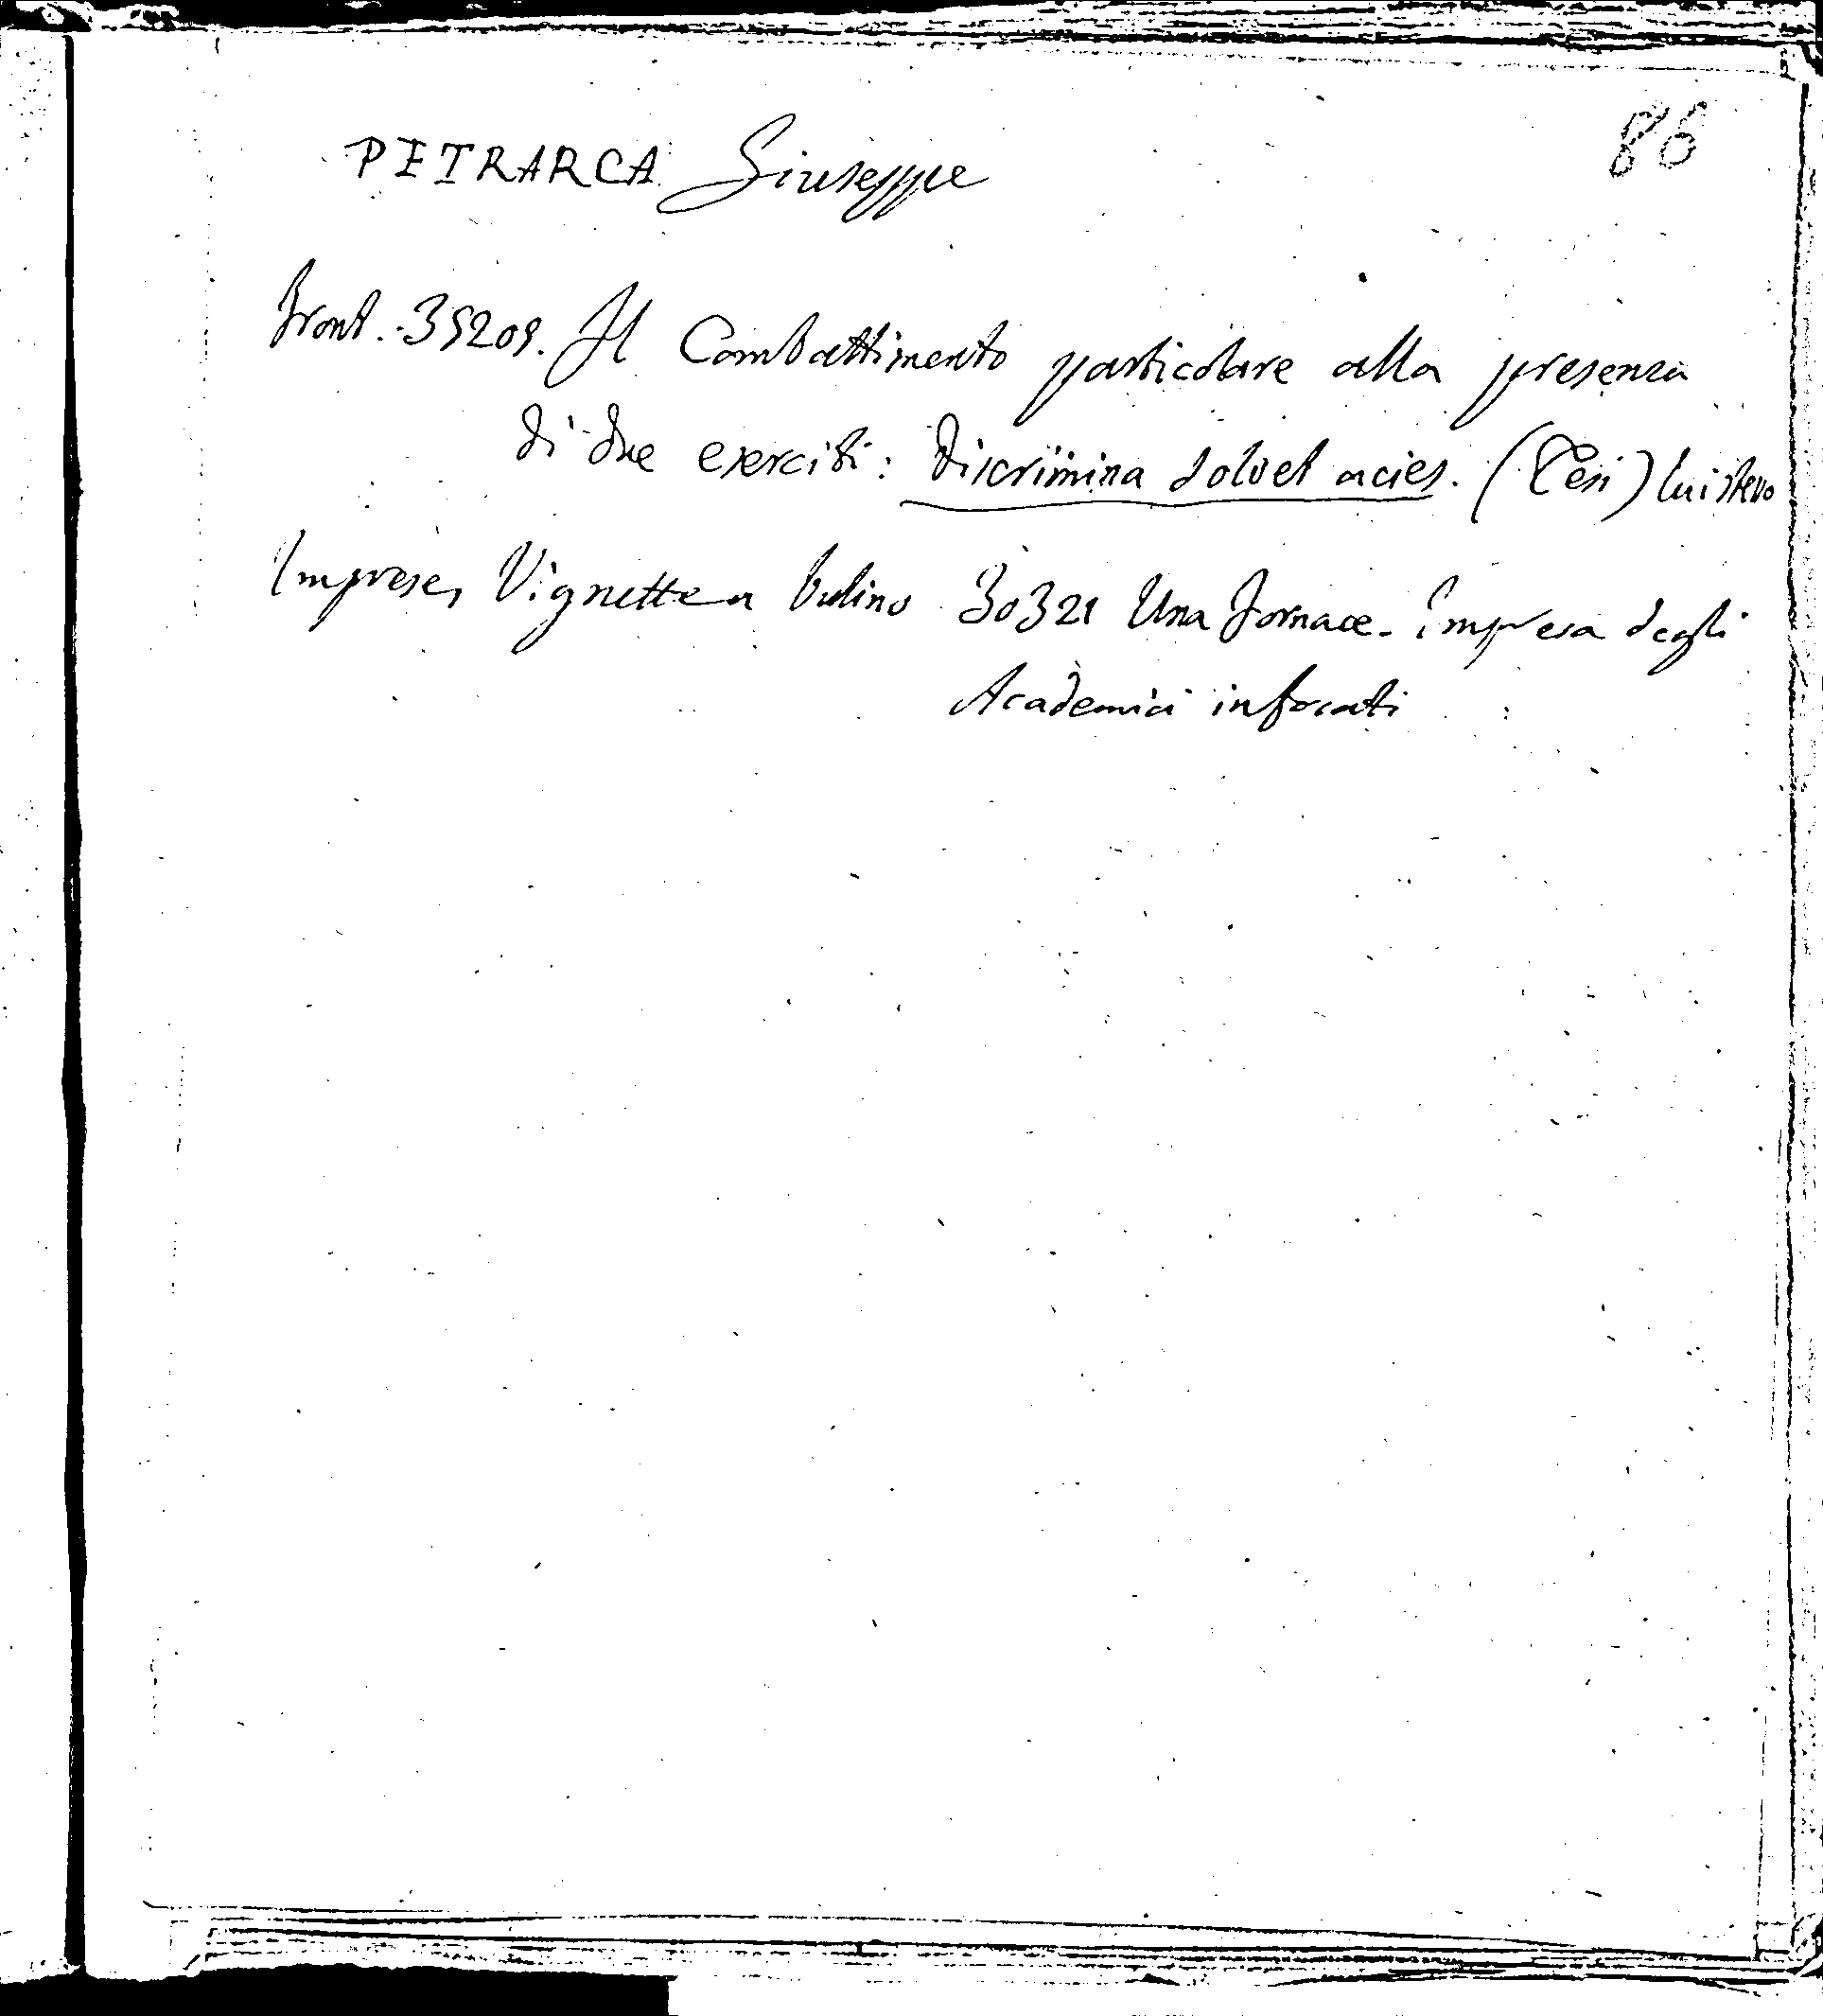 86
PETRARCA Giuseppe
Front. 35209. Il Combattimento particolare alla presenza
di due eserciti: Discrimina solvet acies. (Tesi) lui stesso
Imprese, Vignette a bulino 30321 Una Fornace. Impresa degli
Academici infocati